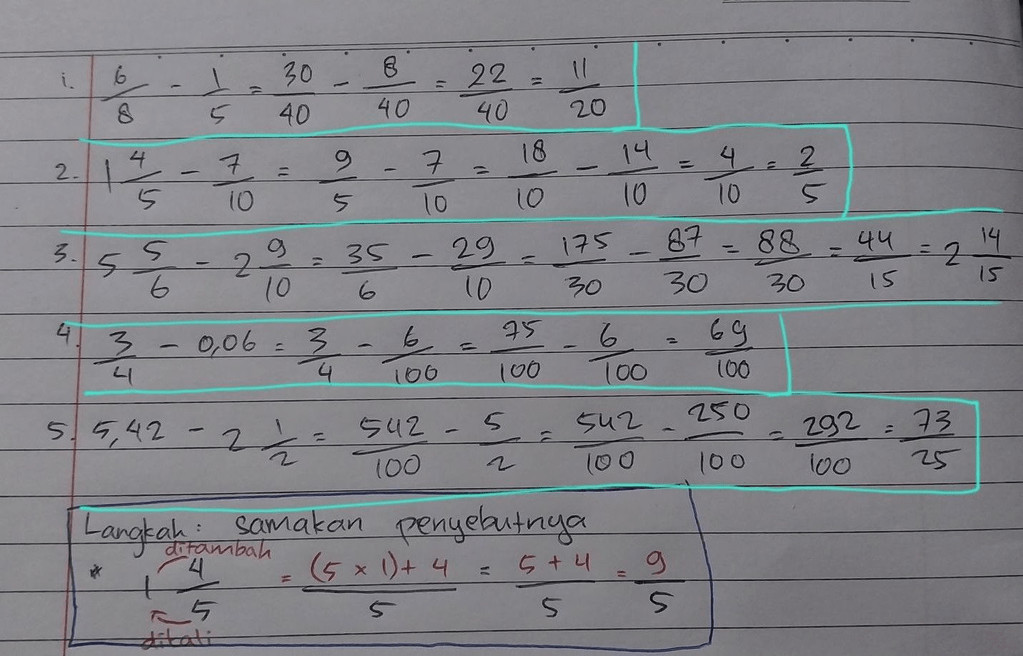 1. 6/8 - 1/5 = 30/40 - 8/40 = 22/40 = 11/20
2. 1 4/5 - 7/10 = 9/5 - 7/10 = 18/10 - 14/10 = 4/10 = 2/5
3. 5 5/6 - 2 9/10 = 35/6 - 29/10 = 175/30 - 87/30 = 88/30 = 44/15 = 2 14/15
4. 3/4 - 0,06 = 3/4 - 6/100 = 75/100 - 6/100 = 69/100
5. 5,42 - 2 1/2 = 542/100 - 5/2 = 542/100 - 250/100 = 292/100 = 73/25
Langkah : samakan penyebutnya
ditambah
* 1 4/5 = (5 x 1) + 4/5 = 5 + 4/5 = 9/5
dikali